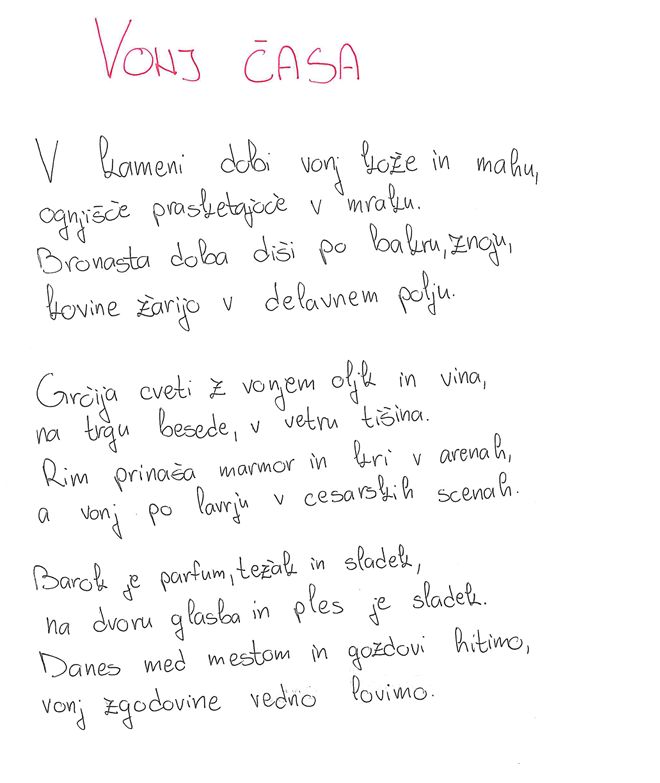 VONJ ČASA
V kameni dobi vonj kože in mahu,
ognjišče prasketajoče v mraku.
Bronasta doba diši po bakru, znoju,
kovine žarijo v delavnem polju.
Grčija cveti z vonjem oljk in vina,
na trgu besede, v vetru tišina.
Rim prinaša marmor in kri v arenah,
a vonj po lavrju v cesarskih scenah.
Barok je parfum, težak in sladek,
na dvoru glasba in ples je sladek.
Danes med mestom in gozdovi hitimo,
vonj zgodovine vedno lovimo.